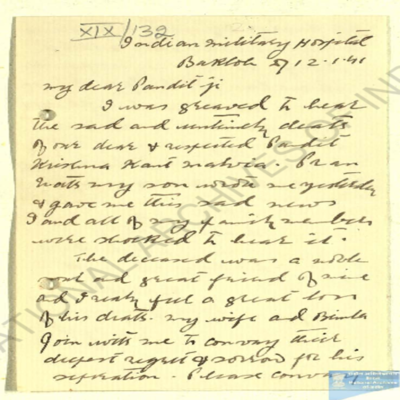 XIX/132
Indian Military Hospital
Bakloh 12.1.41
My dear Pandit ji
I was greaved to hear
the sad and untimely death
of our dear & respected Pandit
Krishna Kant Malvia. Pran
Nath my son wrote me yesterday
& gave me this sad news
I and all of my family members
were shocked to hear it.
The deceased was a noble
soul and great friend of mine
and I really feel a great loss
of his death. My wife and Bimla
Join with me to convay their
deepest regret & sorrow for his
seperation. Please convay
NATIONAL ARCHIVES OF IN